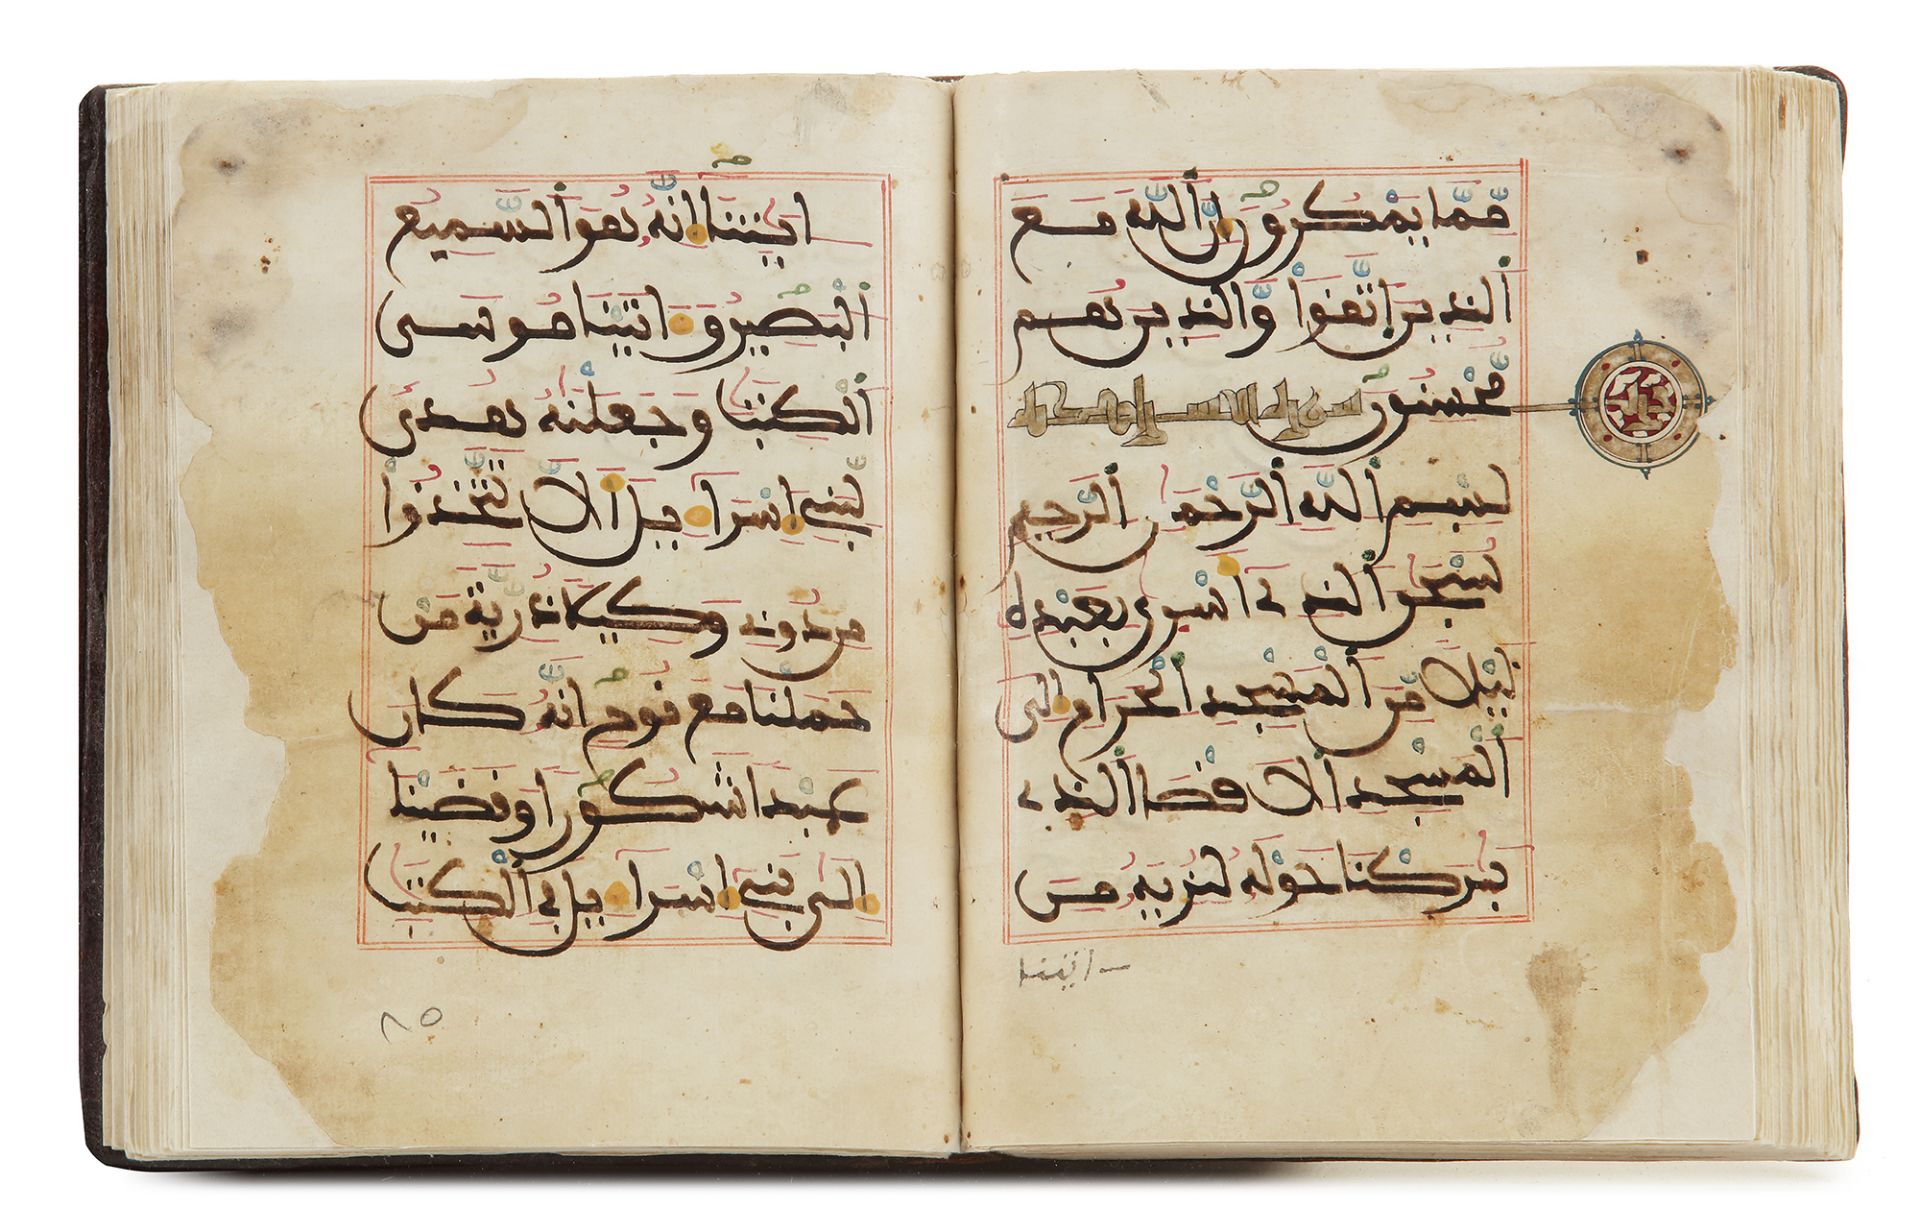 مِّمَّا يَمْكُرُونَ إِنَّ اَللَّهَ مَعَ
اَلذِينَ اَتَّقَواْ وَّالذِينَ هُم
مُّحْسِنُونَ سورة الاسرا
بِسْمِ اِللَّهِ اِلرَّحْمَٰنِ اِلرَّحِيمِ
سُبْحَٰنَ اَلذِي أَسْرَىٰ بِعَبْدِهِ
لَيْلًا مِّنَ اَلْمَسْجِدِ اِلْحَرَامِ إِلَى
اَلْمَسْجِدِ اِلَاقْصَا اَلذِي
بَٰرَكْنَا حَوْلَهُ لِنُرِيَهُ مِنَ
ايتنا
ءَايَٰتِنَا إِنَّهُ هُوَ اَلسَّمِيعُ
اُلْبَصِيرُ وَءَاتَيْنَا مُوسَى
اَلْكِتَٰبَ وَجَعَلْنَٰهُ هُدًى
لِّبَنِي إِسْرَاءِيلَ أَلَّا تَتَّخِذُواْ
مِن دُونِي وَكِيلًا ذُرِّيَّةَ مَنْ
حَمَلْنَا مَعَ نُوحٍ إِنَّهُ كَانَ
عَبْدًا شَكُورًا وَقَضَيْنَا
إِلَىٰ بَنِي إِسْرَاءِيلَ فِي اِلْكِتَٰبِ
٨٥